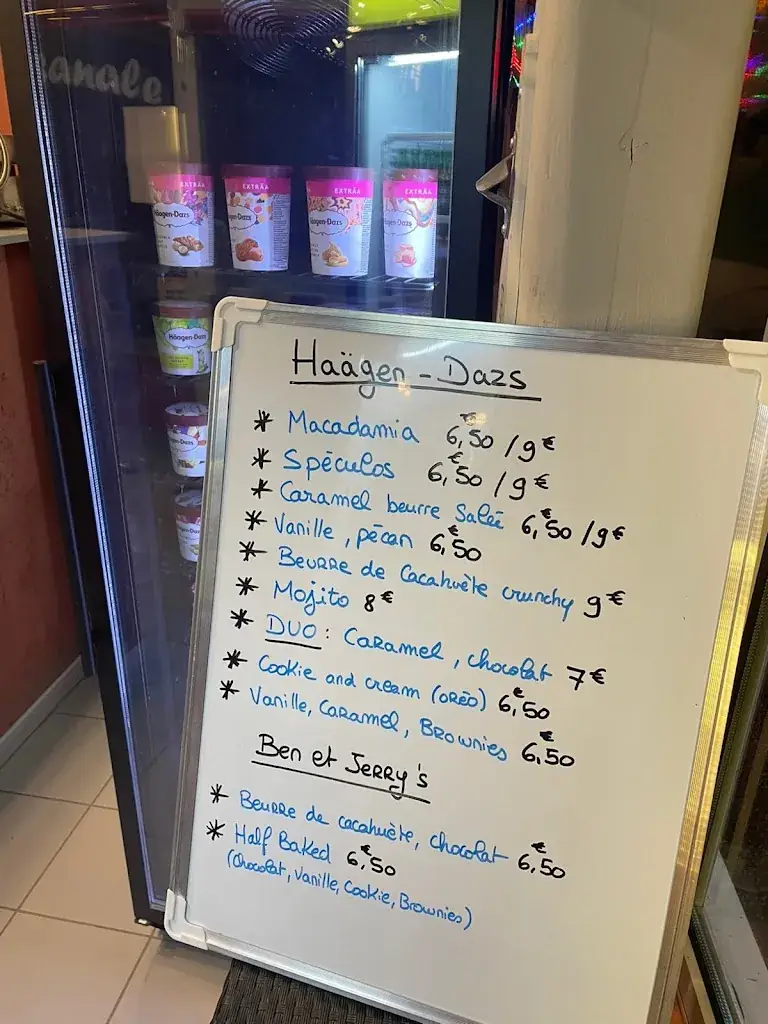 anale
EXTRÄA
EXTRÄA
EXTRÄA
EXTRÄA
Häagen-Dazs
Häagen-Dazs
Häagen-Dazs
Häagen-Dazs
Häagen-Dazs
Haägen - Dazs
* Macadamia 6,50€ / 9€
* Spéculos 6,50€ / 9€
* Caramel beurre Salée 6,50€ / 9€
* Vanille, pécan 6,50€
* Beurre de Cacahuète crunchy 9€
* Mojito 8€
* DUO : Caramel, chocolat 7€
* Cookie and cream (oréo) 6,50€
* Vanille, Caramel, Brownies 6,50€
Ben et Jerry's
* Beurre de cacahuète, chocolat 6,50€
* Half Baked 6,50€
(chocolat, vanille, Cookie, Brownies)